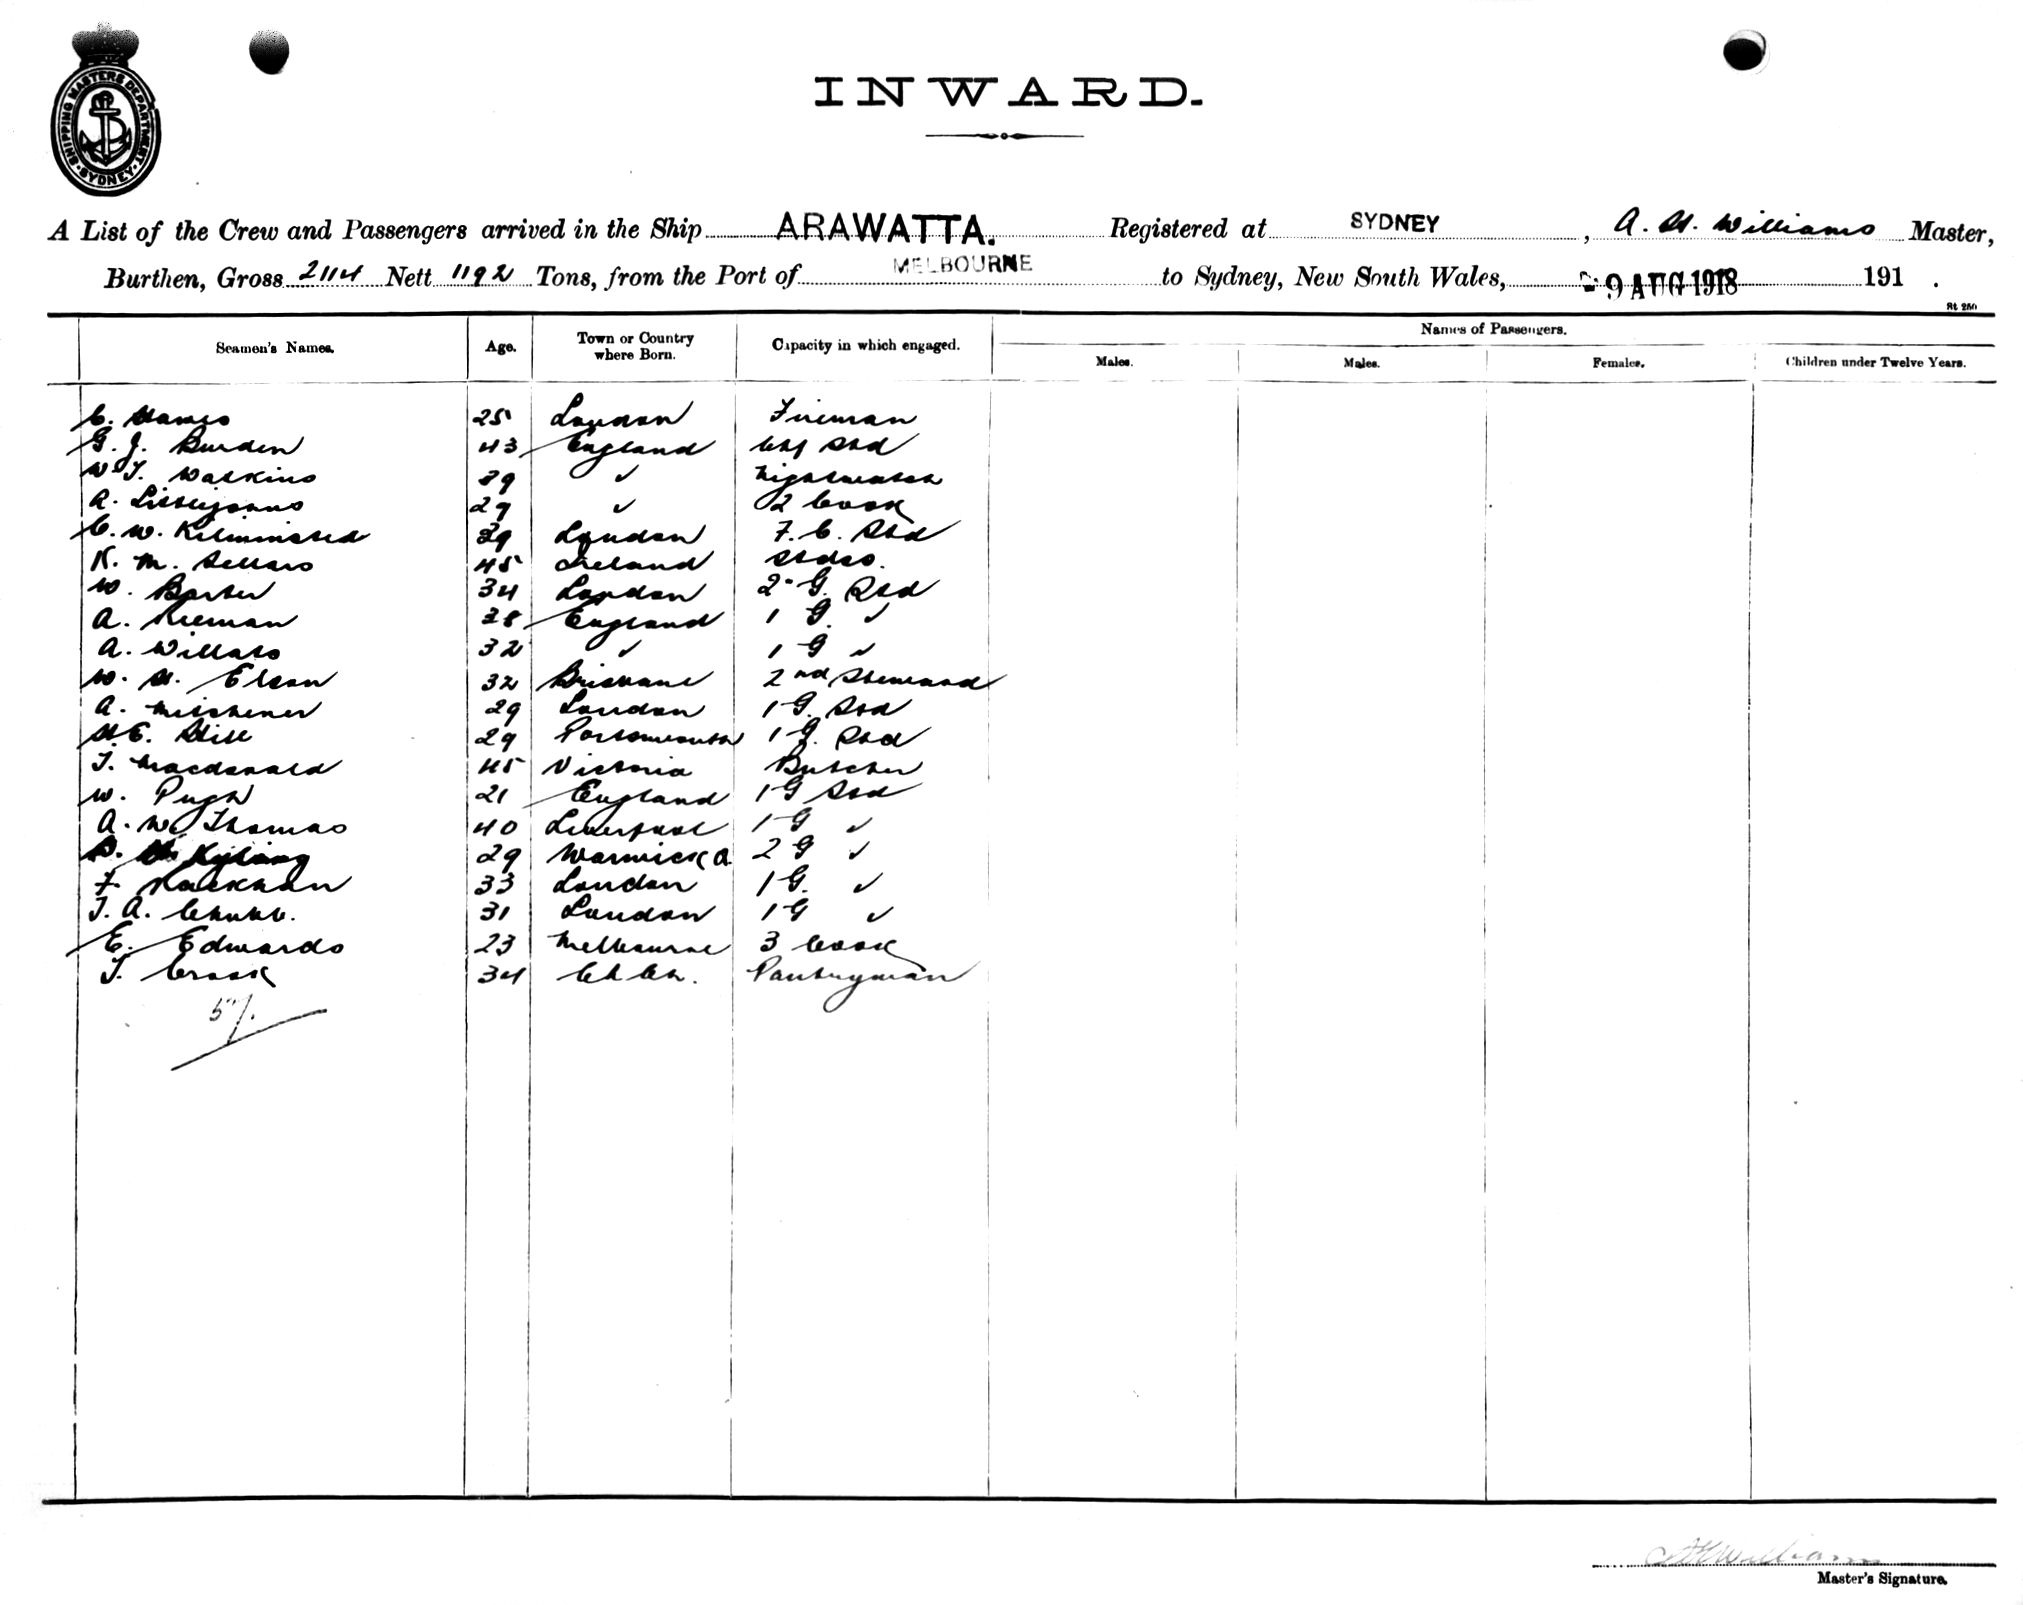 SHIPPING MASTERS DEPARTMENT · SYDNEY ·
INWARD.
A List of the Crew and Passengers arrived in the Ship ARAWATTA. Registered at SYDNEY, A. H. Williams Master,
Burthen, Gross 2114 Nett 1192 Tons, from the Port of MELBOURNE to Sydney, New South Wales, 9 AUG 1918 191 .
St 250
Names of Passengers.
Seamen's Names. Age. Town or Country where Born. Capacity in which engaged. Males. Males. Females. Children under Twelve Years.
C. 25 London Fireman
G. J. Burden 43 England Chf Std
W. T. Watkins 39 ✓ Nightwatch
A. Littlejohns 29 ✓ 2 Cook
C. W. Kilminsted 39 London F. C. Std
K. M. Sellars 45 Ireland Stdss.
W. Barber 34 London 2 G. Std
A. 38 England 1 G. ✓
A. Willats 32 ✓ 1 G ✓
W. H. Elson 32 Brisbane 2nd Steward
A. Mitchener 29 London 1 G. Std
H. E. Still 29 Portsmouth 1 G. Std
T. Macdonald 45 Victoria Butcher
W. Pugh 21 England 1 G Std
A. W. Thomas 40 Liverpool 1 G ✓
29 Warwick Q 2 G ✓
F. Hackman 33 London 1 G. ✓
T. A. Chubb. 31 London 1 G ✓
E. Edwards 23 Melbourne 3 Cook
T. Crook 34 Ch Ch. Pantryman
57.
A H Williams
Master's Signature.